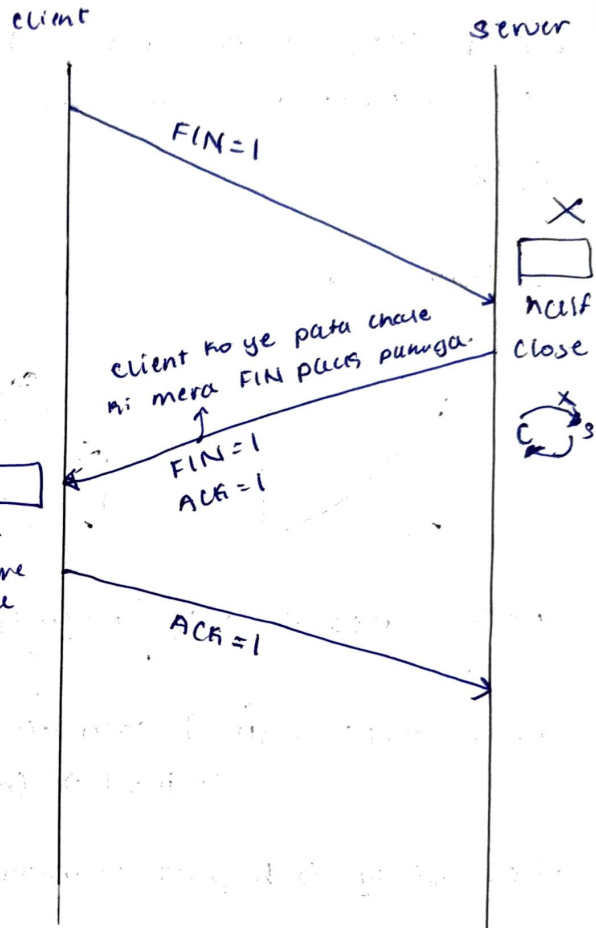 client
server
FIN=1
X
half
close
client ko ye pata chale
ki mera FIN pack
FIN=1
ACK=1
X
C S
ACK=1